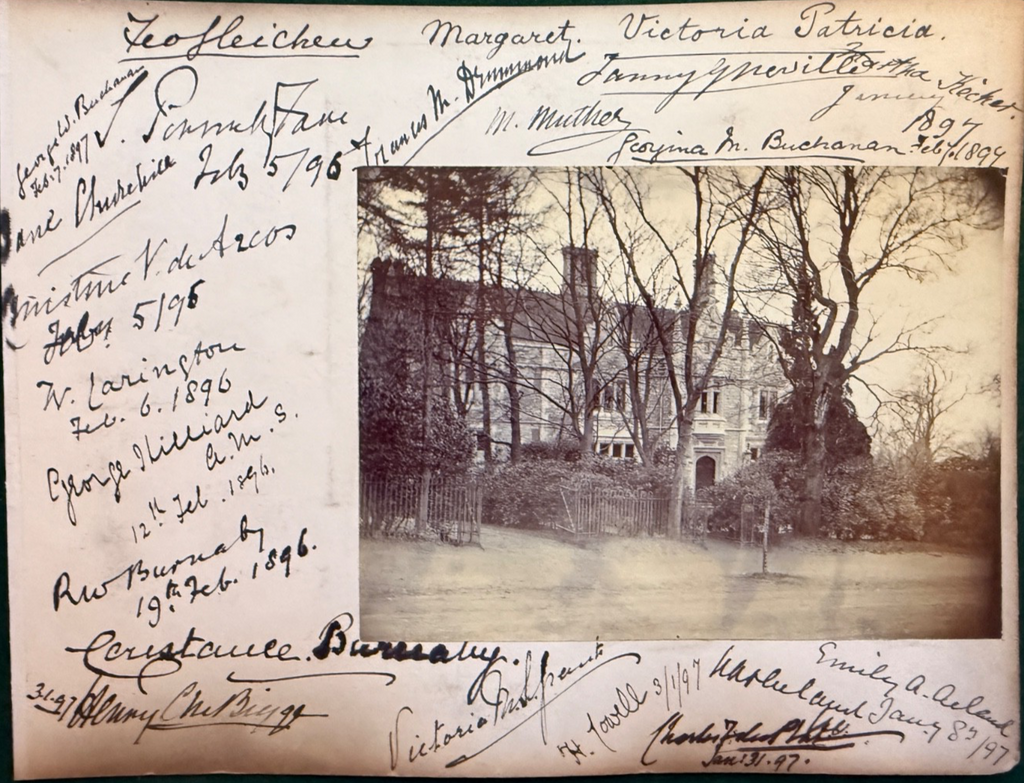 Feo Gleichen
Margaret.
Victoria Patricia.
George W. Buchanan
Feb. 7. 1897
Feb 5/96
Frances M. Drummond
Fanny G Neville
M. Muther
Hacket.
1897
Georgina M. Buchanan. Feb. 7. 1897
Jane Churchill
Christine V. de Arcos
Feb. 5/96
W. Carington
Feb. 6. 1896
George Hilliard
A.M.S.
12th Feb. 1896.
RW Burnaby
19th Feb. 1896.
Constance Burnaby.
31.97
Henry
Victoria M. S. Grant
H. Lovell 3/1/97
Emily A. Acland
Jany 8th/97
Charles F. du Plat
Jan: 31. 97.